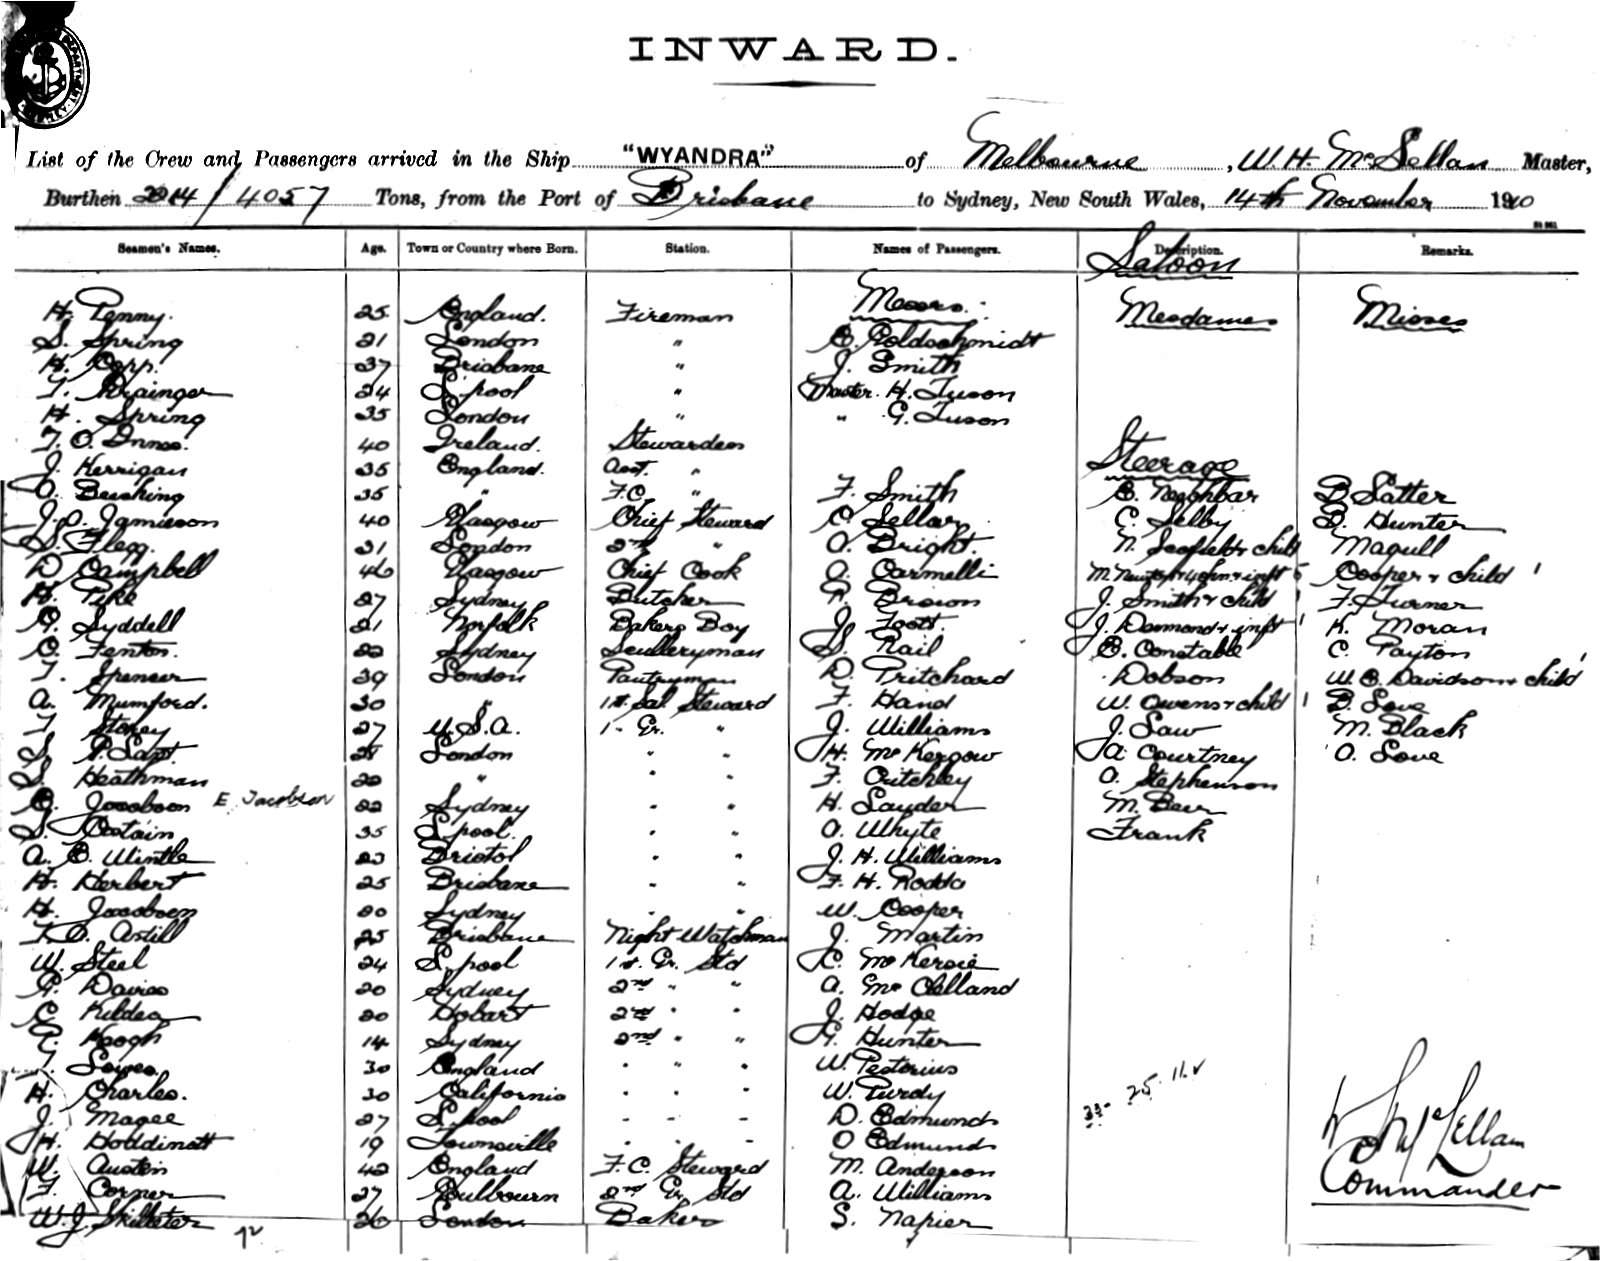 INWARD.
List of the Crew and Passengers arrived in the Ship "WYANDRA" of Melbourne, W. H. McLellan Master,
Burthen 2014/4057 Tons, from the Port of Brisbane to Sydney, New South Wales, 14th November 1910
Seamen's Names. Age. Town or Country where Born. Station. Names of Passengers. Description. Remarks.
Saloon
H. Penny. 25 England. Fireman Messrs. Mesdames Misses
S. Spring 21 London " E. Goldschmidt
H. 37 Brisbane " J. Smith
T. Grainger 24 L.pool " Master. H. Tuson
H. Spring 35 London " " G. Tuson
T. O. Innes. 40 Ireland. Stewardess
J. Kerrigan 35 England. Asst. " Steerage
O. Bushing 35 " F.C. " F. Smith E. Neighbar B. Satter
J. P. Jamieson 40 Glasgow Chief Steward C. Sellar C. Selby B. Hunter
S. Flegg. 31 London 2nd " A. Bright. N. Scofield & child Magull
D Campbell 46 Glasgow Chief Cook A. Carmelli M. Newton & 4 chn & inft 5 Cooper & child 1
H. Pike 27 Sydney Butcher Brown J. Smith & child 1 F. Turner
G. Lyddell 21 Norfolk Bakers Boy J. Foott. J. Desmond & inft 1 K. Moran
C. Fenton. 22 Sydney Sculleryman S. Rail E. Constable C. Payton
T. Spencer 39 London Pantryman D. Pritchard Dobson W. E. Davidson & child 1
A. Mumford. 30 " 1st Sal Steward F. Hand W. Owens & child 1 B. Love
T. Storey 27 U.S.A. 1- Gr. " J. Williams J. Law M. Black
S. P. 21 London " " H. McKergow A Courtney O. Love
S. Heathman 22 " " " F. Critchley A. Stephenson
G. Jacobson E. Jacobson 22 Sydney " " H. Sayder M. Beer
S. Costain 35 L.pool. " " A. Whyte Frank
A. E. Wintle 23 Bristol " " J. H. Williams
H. Herbert 25 Brisbane " " F. H. Rodda
H. Jacobson 20 Sydney " " W. Cooper
Astill 25 Brisbane Night Watchman J. Martin
W. Steel 24 L.pool 1st. Gr. Std C. McKersie
G. Davies 20 Sydney 2nd " " A. McClelland
C. Kildea 20 Hobart 2nd " " J. Hodge
Keogh 14 Sydney 2nd " " G. Hunter
T. Lowes. 30 England " " " W. Pestorius
H. Charles. 30 California " " " W. Purdy
J. Magee 27 L.pool - - - D. Edmunds
H. Hoddinott 19 Townsville - - - O Edmunds
W. Austin 42 England F.C. Steward M. Anderson
F. Corner 27 Goulbourn 2nd Gr. Std A. Williams
W. J. Skilleter 26 London Baker S. Napier
25.11.
W H McLellan
Commander
72